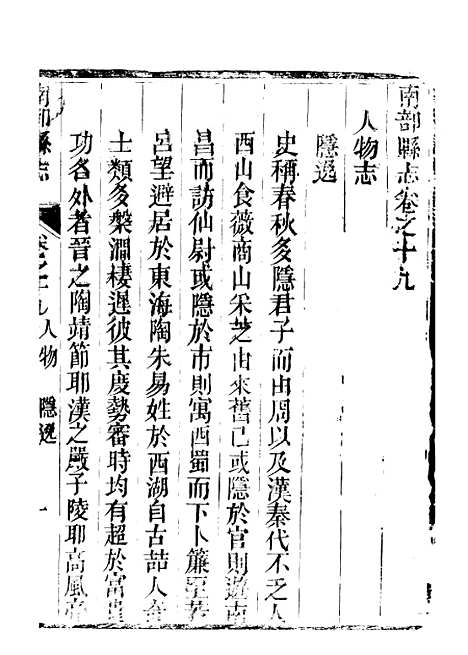 南部縣志卷之十九
人物志
隱逸
史稱春秋多隱君子而由周以及漢秦代不乏人
西山食薇商山采芝由來舊已或隱於官則遊南
昌而訪仙尉或隱於市則寓西蜀而下卜簾至若
呂望避居於東海陶朱易姓於西湖自古喆人
士類多槃澗棲遲彼其度勢審時均有超於富貴
功名外者晉之陶靖節耶漢之嚴子陵耶高風
南部縣志
卷之十九人物 隱逸 一